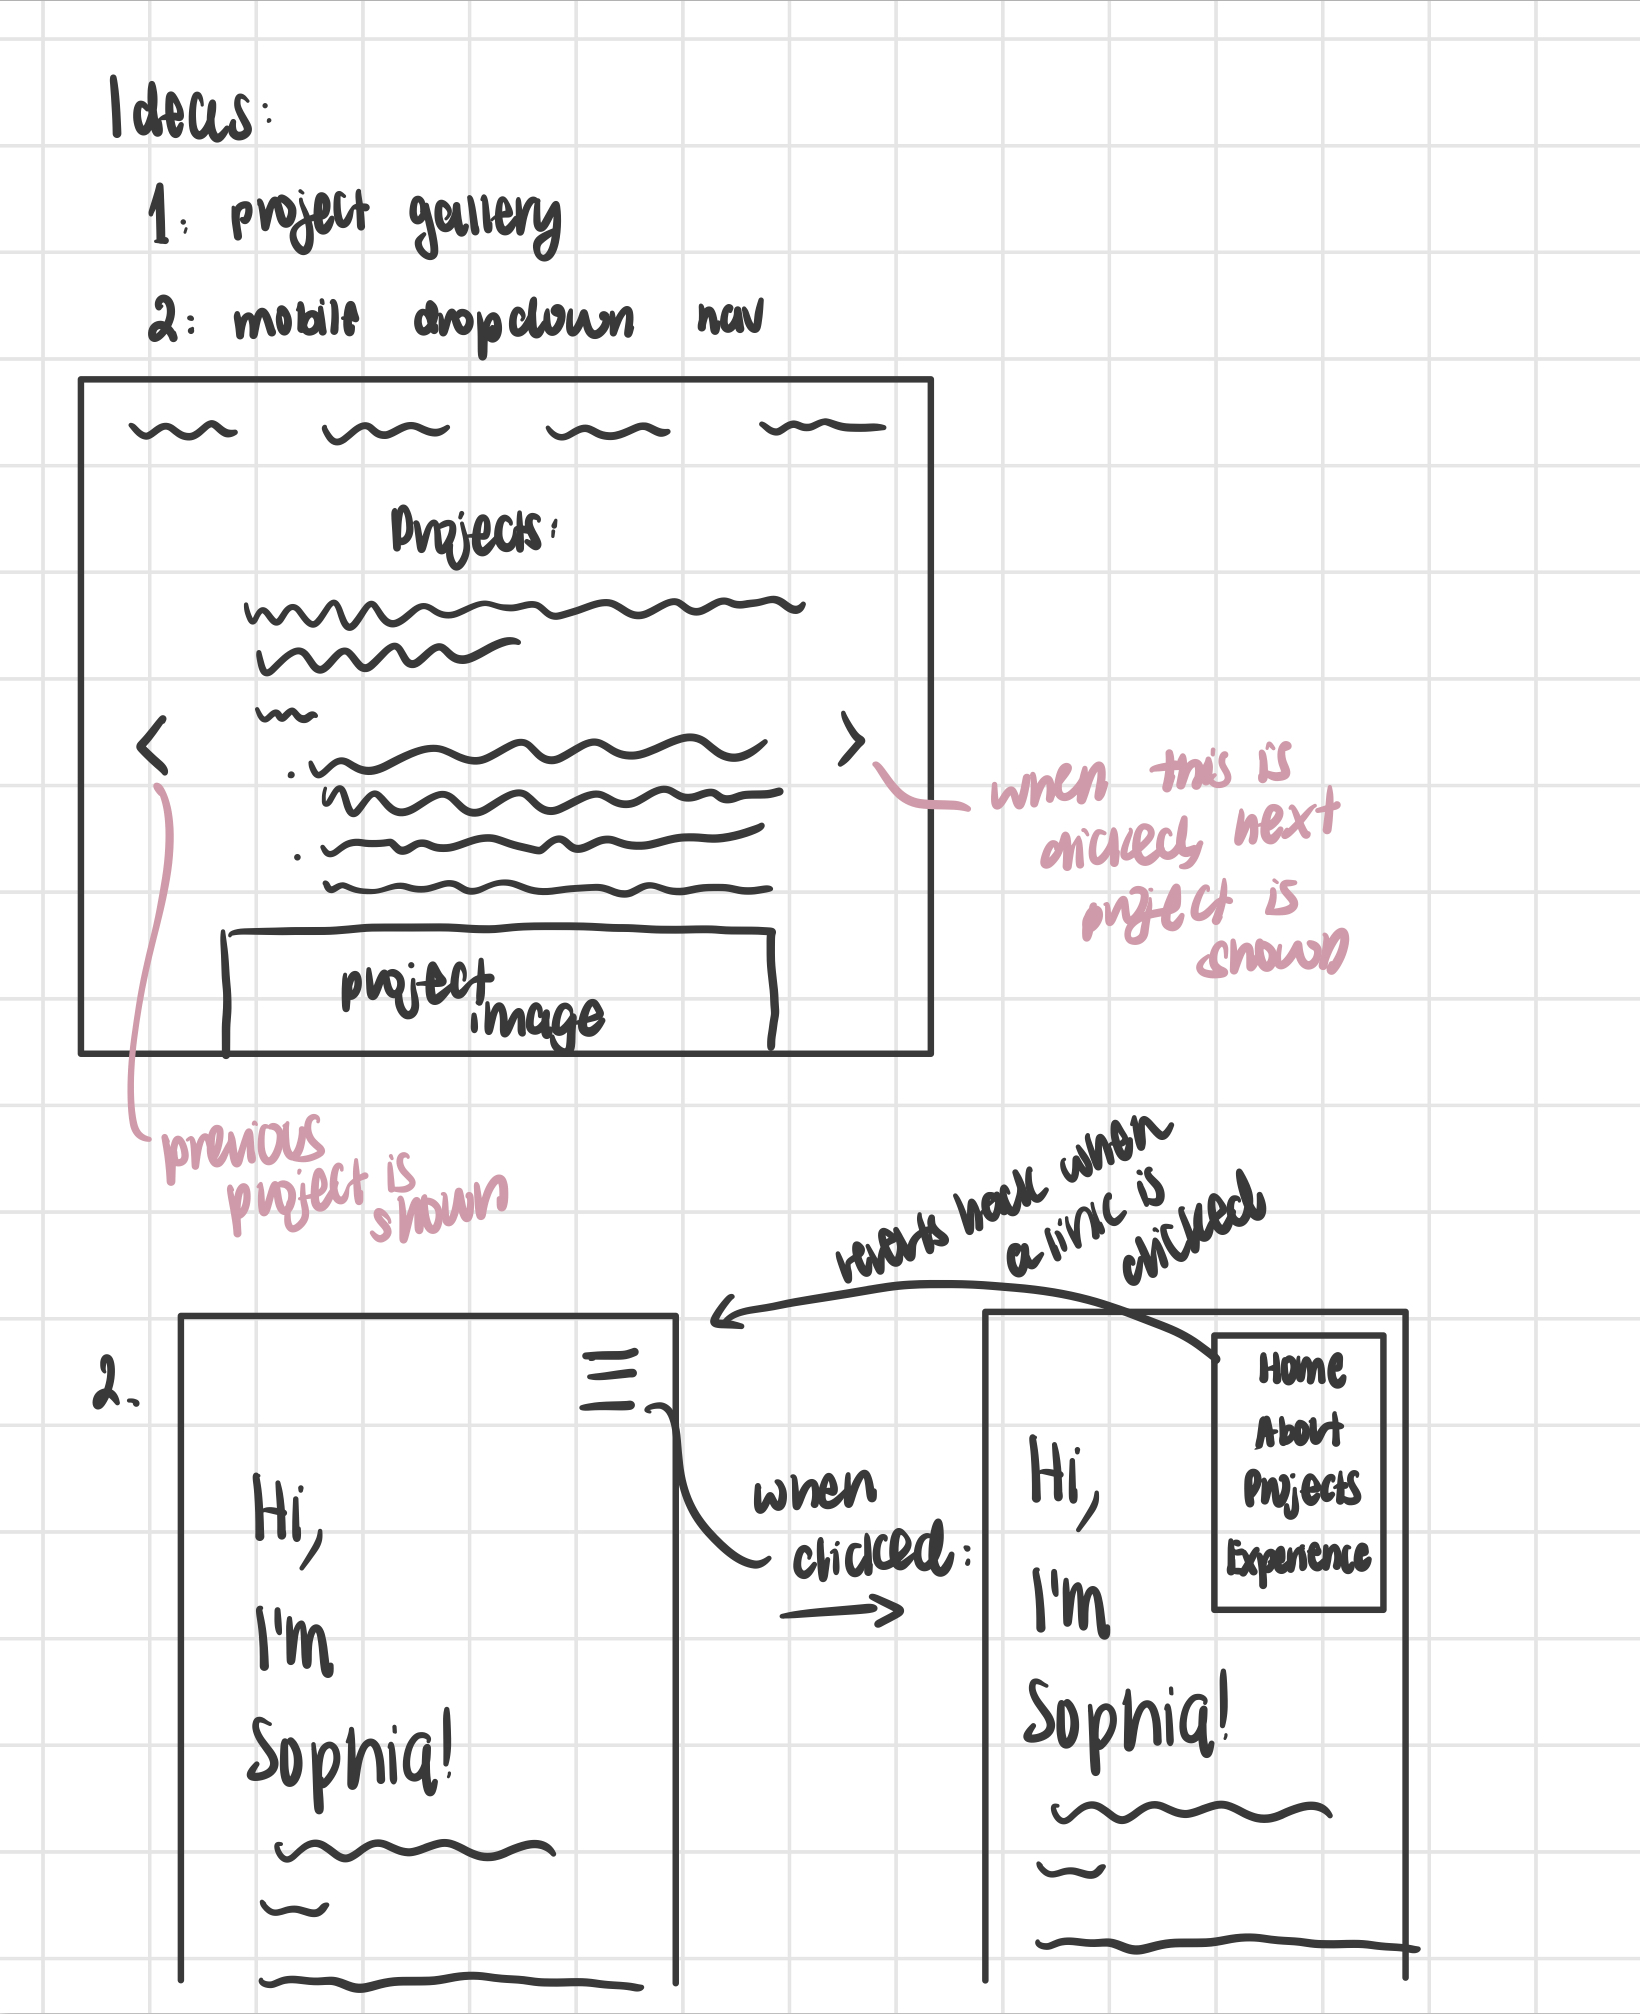 Ideas:
1. project gallery
2. mobile dropdown nav
Projects:
<
>
project
image
when this is
clicked, next
project is
shown
previous
project is
shown
reverts back when
a link is
clicked
2.
Hi,
I'm
Sophia!
when
clicked:
Home
About
Projects
Experience
Hi,
I'm
Sophia!